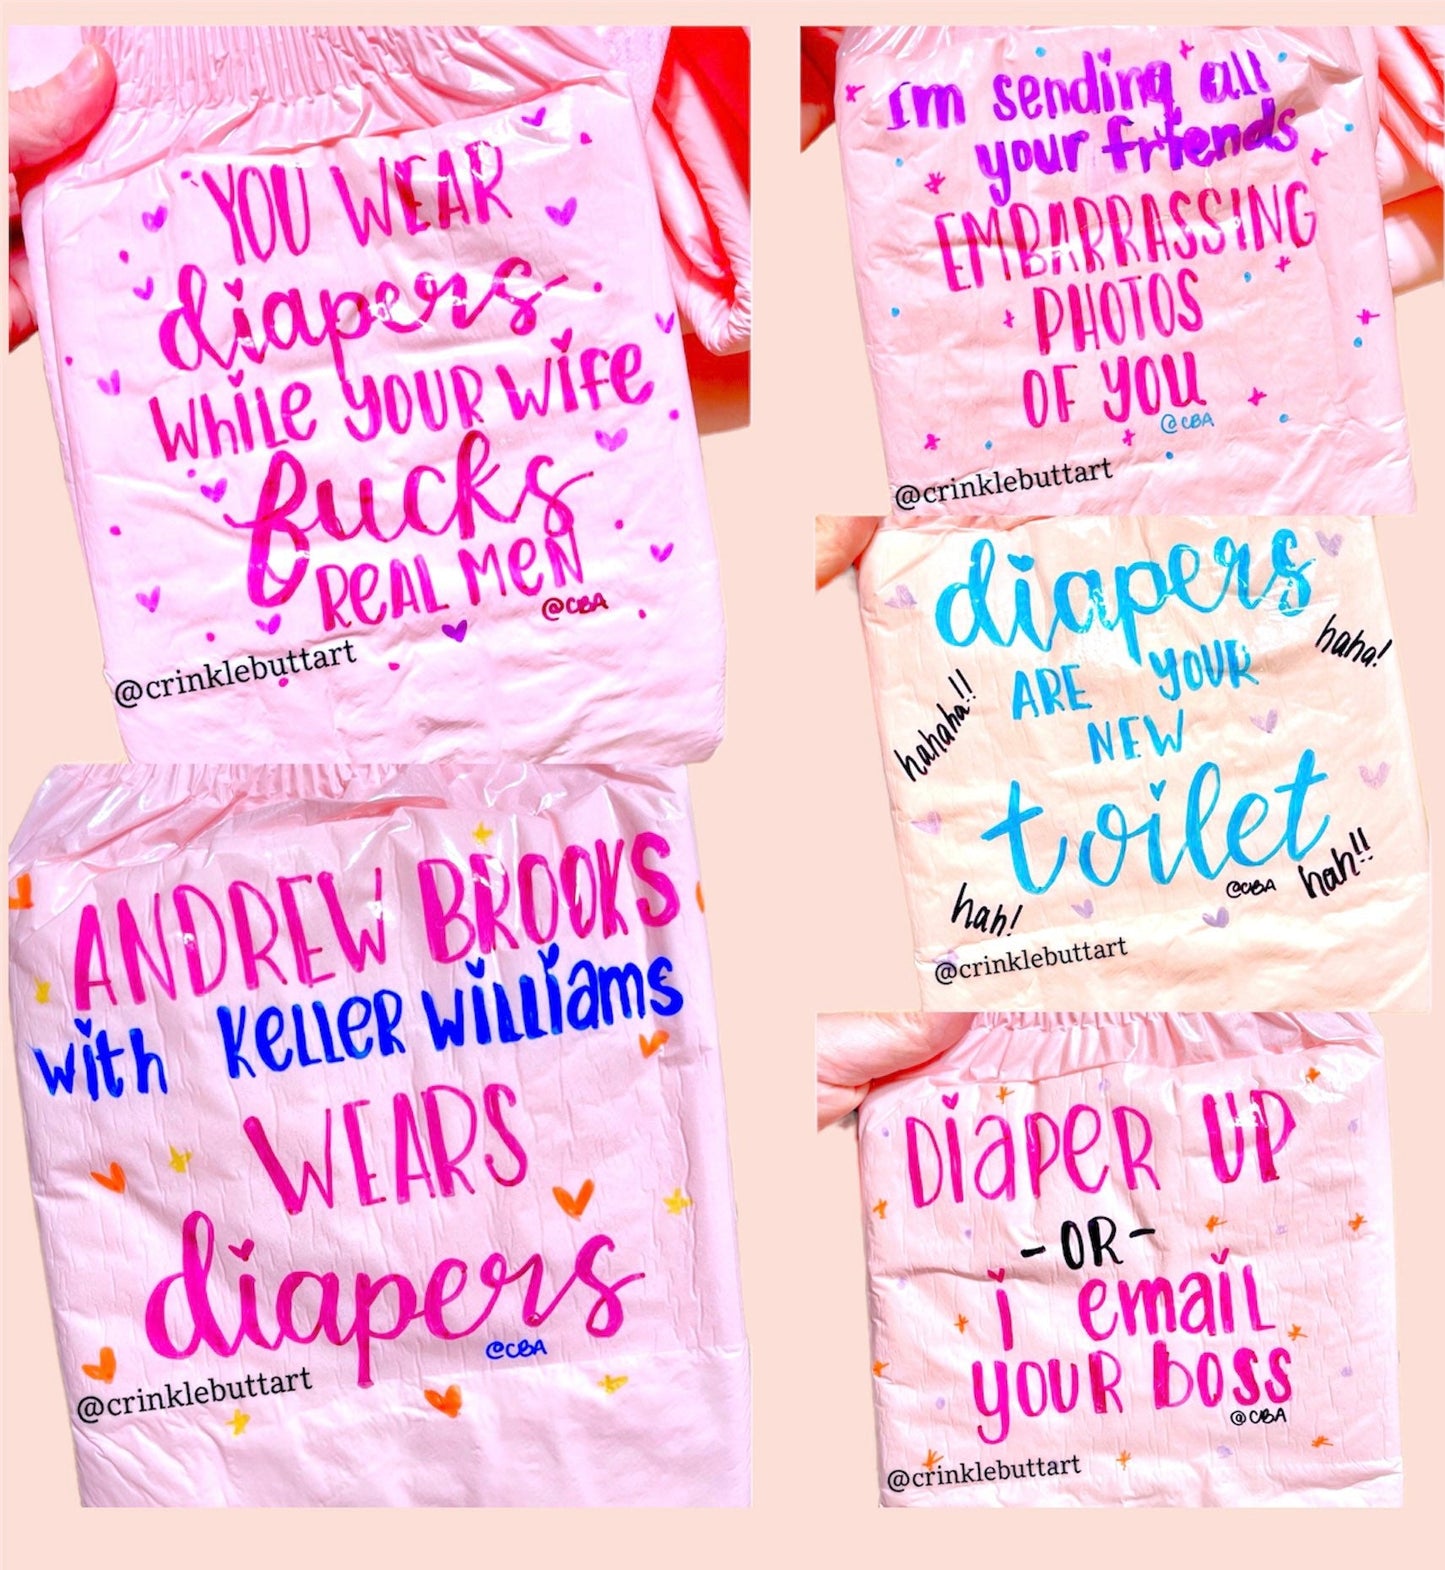 YOU WEAR
diapers
while your wife
fucks
REAL MEN
@CBA
@crinklebuttart
ANDREW BROOKS
with Keller Williams
WEARS
diapers
@CBA
@crinklebuttart
I'm sending all
your friends
EMBARRASSING
PHOTOS
OF YOU
@CBA
@crinklebuttart
diapers
haha!
ARE YOUR
hahaha!!
NEW
toilet
@CBA
hah!!
hah!
@crinklebuttart
Diaper UP
-OR-
i email
your boss
@CBA
@crinklebuttart